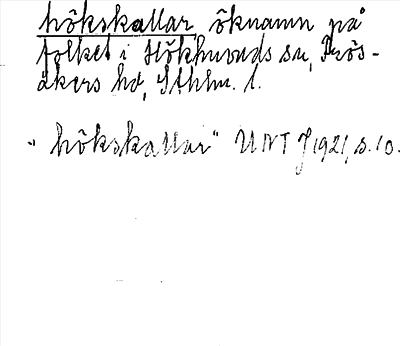 hökskallar öknamn på
folket i Hökhuvuds sn, Frös-
åkers hd, Sthlm. l.
"hökskallar" UNT J 1921, s. 10.